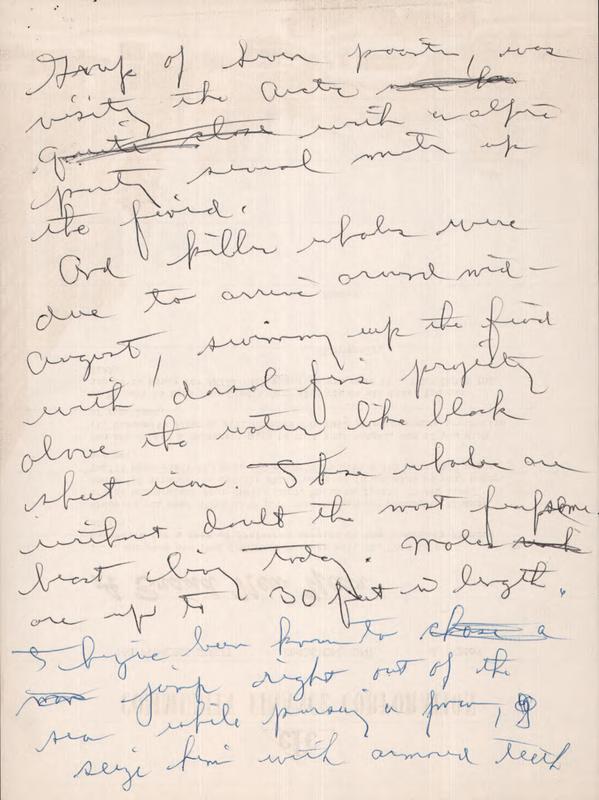 Group of Seven painter, was
visiting the Arctic
quite close with an alpine
party several miles up
the fiord.
And killer whales were
due to arrive around mid-
August, swimming up the fiord
with dorsal fins projecting
above the water like black
sheet iron. These whales are
without doubt the most fearsome
beast living today. Males
are up to 30 feet in length.
They've been known to chase a
jump right out of the
sea while pursuing a prey, &
seize him with armoured teeth